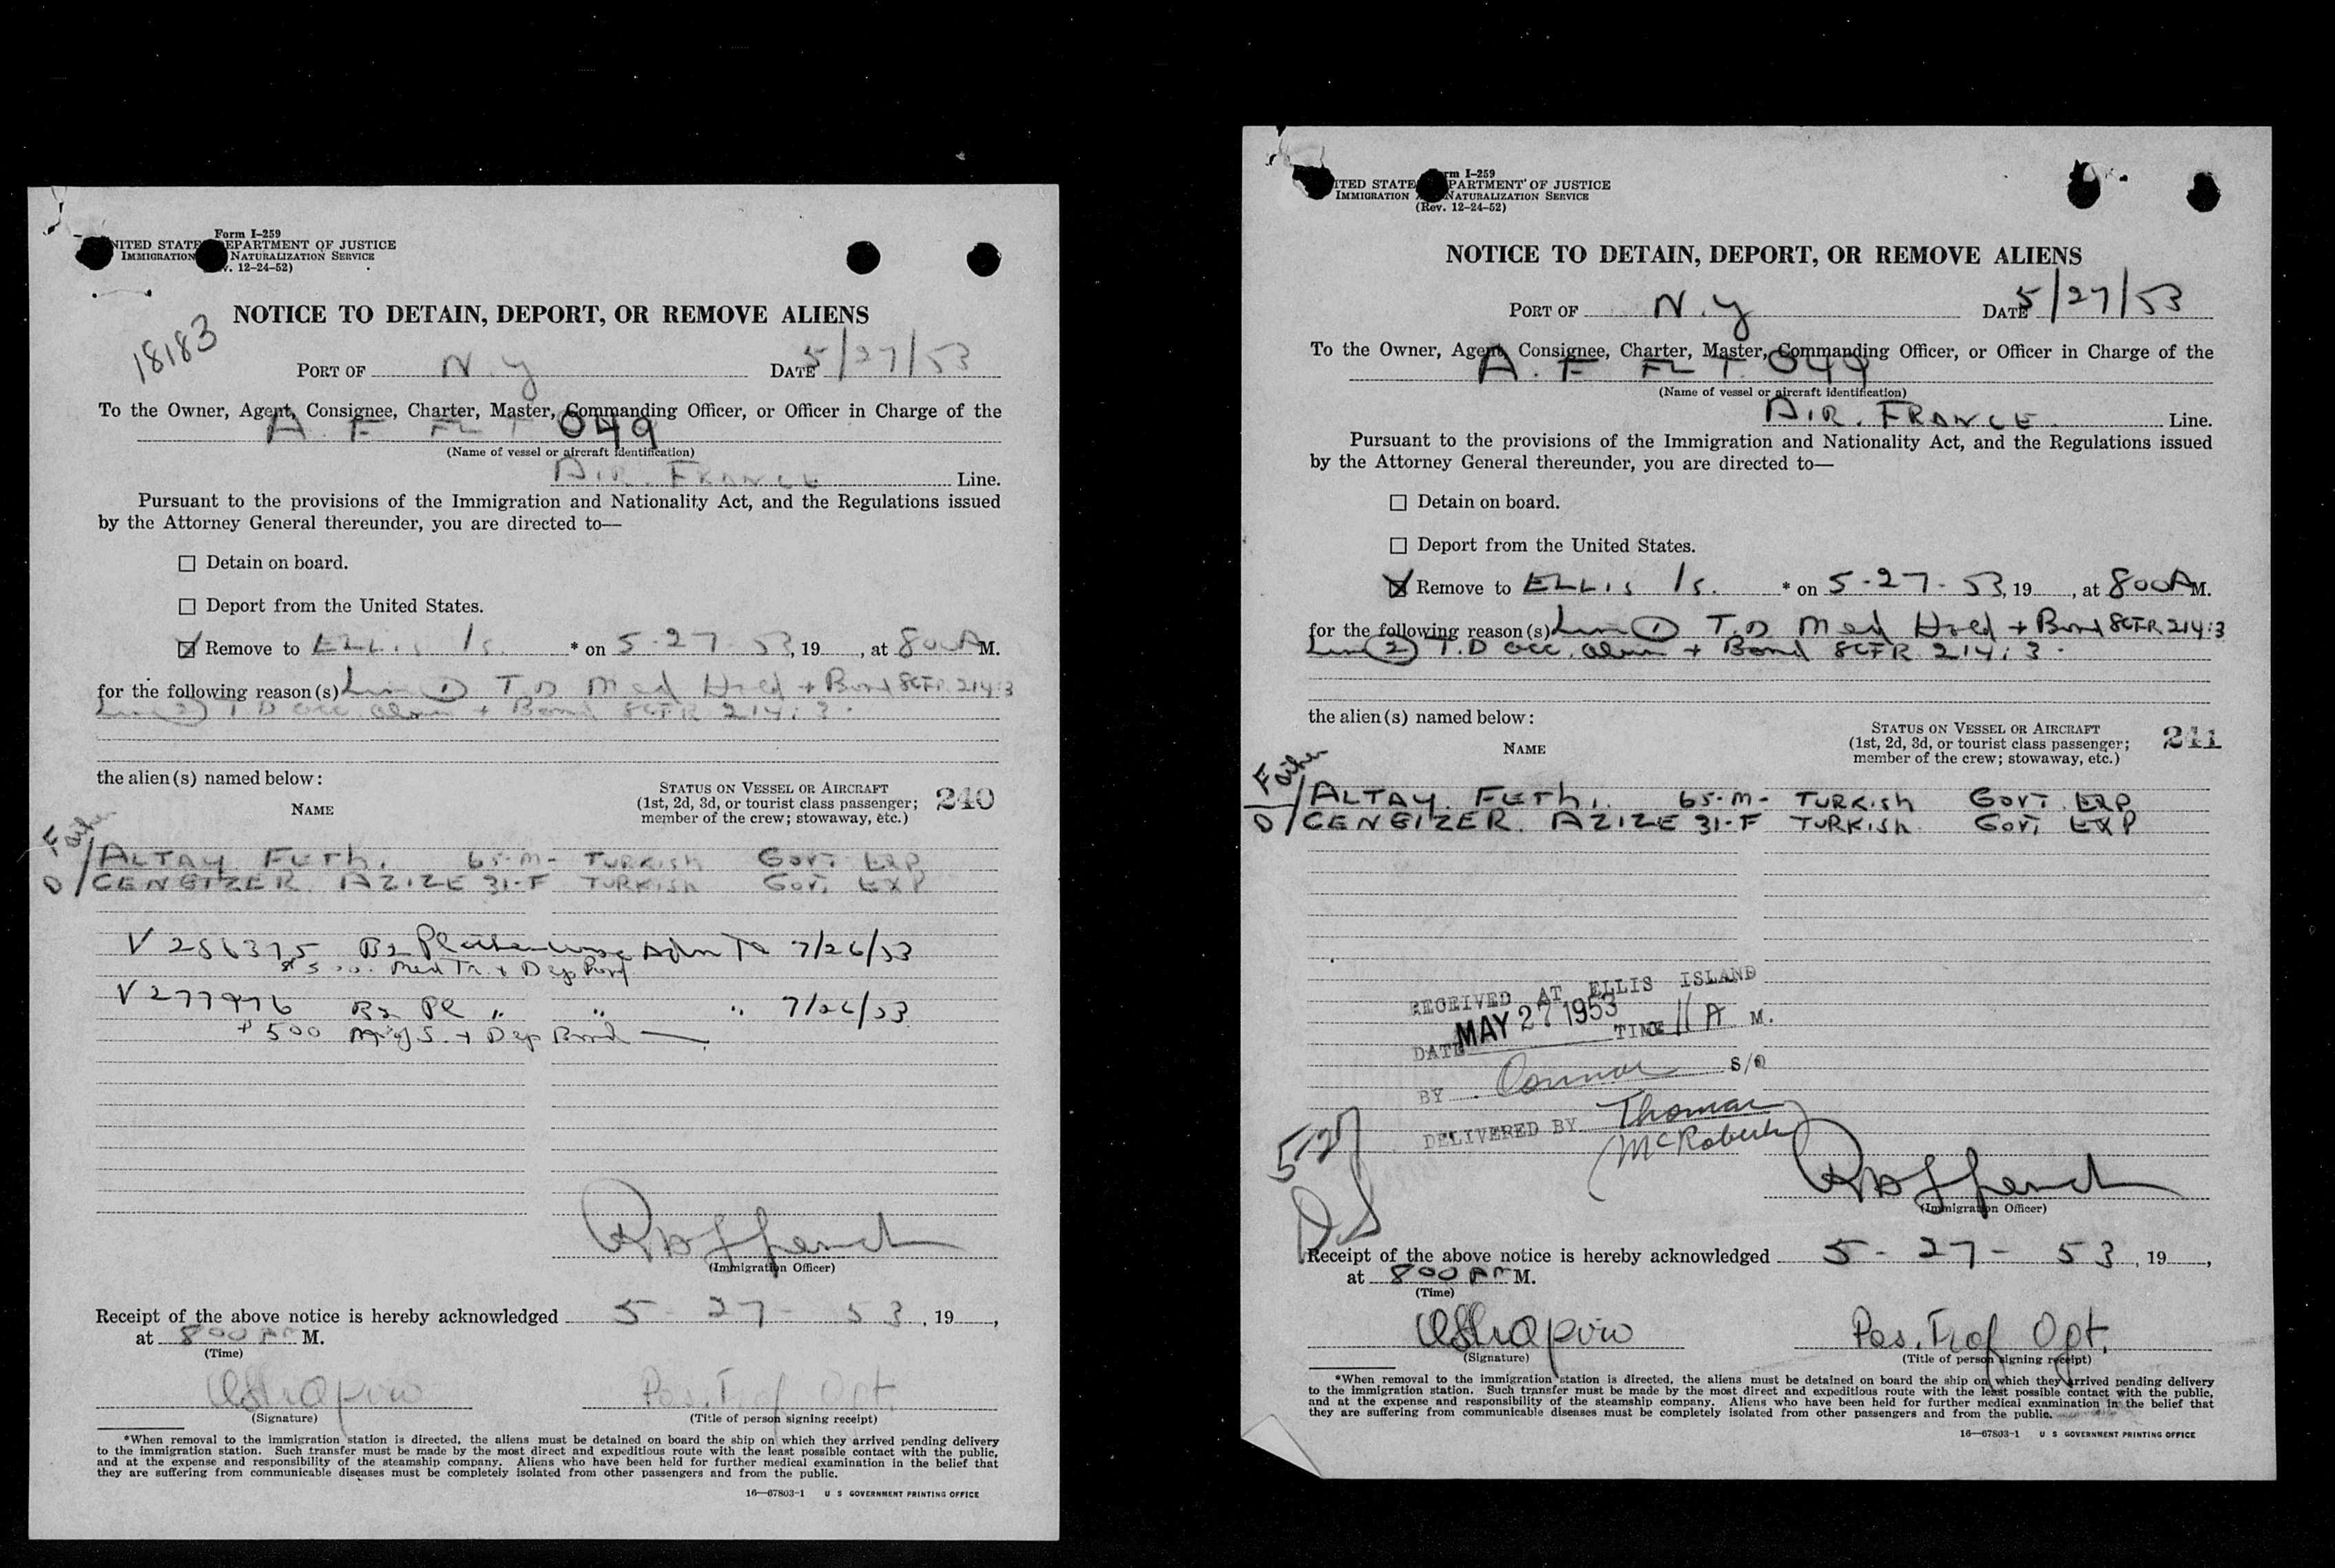 Form I-259
NITED STATE EPARTMENT OF JUSTICE
IMMIGRATION NATURALIZATION SERVICE
v. 12-24-52)
NOTICE TO DETAIN, DEPORT, OR REMOVE ALIENS
18183
PORT OF N.Y DATE 5/27/53
To the Owner, Agent, Consignee, Charter, Master, Commanding Officer, or Officer in Charge of the
A. F FLT 049
(Name of vessel or aircraft identification)
AIR. FRANCE Line.
Pursuant to the provisions of the Immigration and Nationality Act, and the Regulations issued
by the Attorney General thereunder, you are directed to—
☐ Detain on board.
☐ Deport from the United States.
☒ Remove to ELLIS Is. * on 5-27-53, 19 , at 800A M.
for the following reason(s) Line 1 T.D Med Hold + Bond 8CFR 214:3
Line 2 T.D acc. alien + Bond 8CFR 214:3.
the alien(s) named below:
NAME
STATUS ON VESSEL OR AIRCRAFT
(1st, 2d, 3d, or tourist class passenger;
member of the crew; stowaway, etc.)
240
Father
F/ALTAY FETHI. 65-M- TURKISH GOVT EXP
D/CENGIZER. AZIZE 31-F TURKISH GOVT EXP
V 256375 B2 Adm To 7/26/53
Med Tr. + Dep Bond
V 277976 B2 Pl " " " 7/26/53
$500 + Dep Bond
(Immigration Officer)
Receipt of the above notice is hereby acknowledged 5-27-53, 19 ,
at 800 AM M.
(Time)
Shapiro Pas. Traf Opt.
(Signature) (Title of person signing receipt)
*When removal to the immigration station is directed, the aliens must be detained on board the ship on which they arrived pending delivery
to the immigration station. Such transfer must be made by the most direct and expeditious route with the least possible contact with the public,
and at the expense and responsibility of the steamship company. Aliens who have been held for further medical examination in the belief that
they are suffering from communicable diseases must be completely isolated from other passengers and from the public.
16—67803-1 U S GOVERNMENT PRINTING OFFICE
rm I-259
ITED STATE PARTMENT OF JUSTICE
IMMIGRATION NATURALIZATION SERVICE
(Rev. 12-24-52)
NOTICE TO DETAIN, DEPORT, OR REMOVE ALIENS
PORT OF N.Y DATE 5/27/53
To the Owner, Agent, Consignee, Charter, Master, Commanding Officer, or Officer in Charge of the
A. F FLT 049
(Name of vessel or aircraft identification)
AIR. FRANCE Line.
Pursuant to the provisions of the Immigration and Nationality Act, and the Regulations issued
by the Attorney General thereunder, you are directed to—
☐ Detain on board.
☐ Deport from the United States.
☒ Remove to ELLIS Is. * on 5-27-53, 19 , at 800A M.
for the following reason(s) Line 1 T.D Med Hold + Bond 8CFR 214:3
Line 2 T.D acc. alien + Bond 8CFR 214:3.
the alien(s) named below:
NAME
STATUS ON VESSEL OR AIRCRAFT
(1st, 2d, 3d, or tourist class passenger;
member of the crew; stowaway, etc.)
241
Father
F/ALTAY FETHI. 65-M- TURKISH GOVT EXP
D/CENGIZER. AZIZE 31-F TURKISH GOVT EXP
RECEIVED AT ELLIS ISLAND
DATE MAY 27 1953 TIME 11 A M.
BY Connor S/O
DELIVERED BY Thomas
McRoberts
5/27
DS
(Immigration Officer)
Receipt of the above notice is hereby acknowledged 5-27-53, 19 ,
at 800 AM M.
(Time)
Shapiro Pas. Traf Opt.
(Signature) (Title of person signing receipt)
*When removal to the immigration station is directed, the aliens must be detained on board the ship on which they arrived pending delivery
to the immigration station. Such transfer must be made by the most direct and expeditious route with the least possible contact with the public,
and at the expense and responsibility of the steamship company. Aliens who have been held for further medical examination in the belief that
they are suffering from communicable diseases must be completely isolated from other passengers and from the public.
16—67803-1 U S GOVERNMENT PRINTING OFFICE